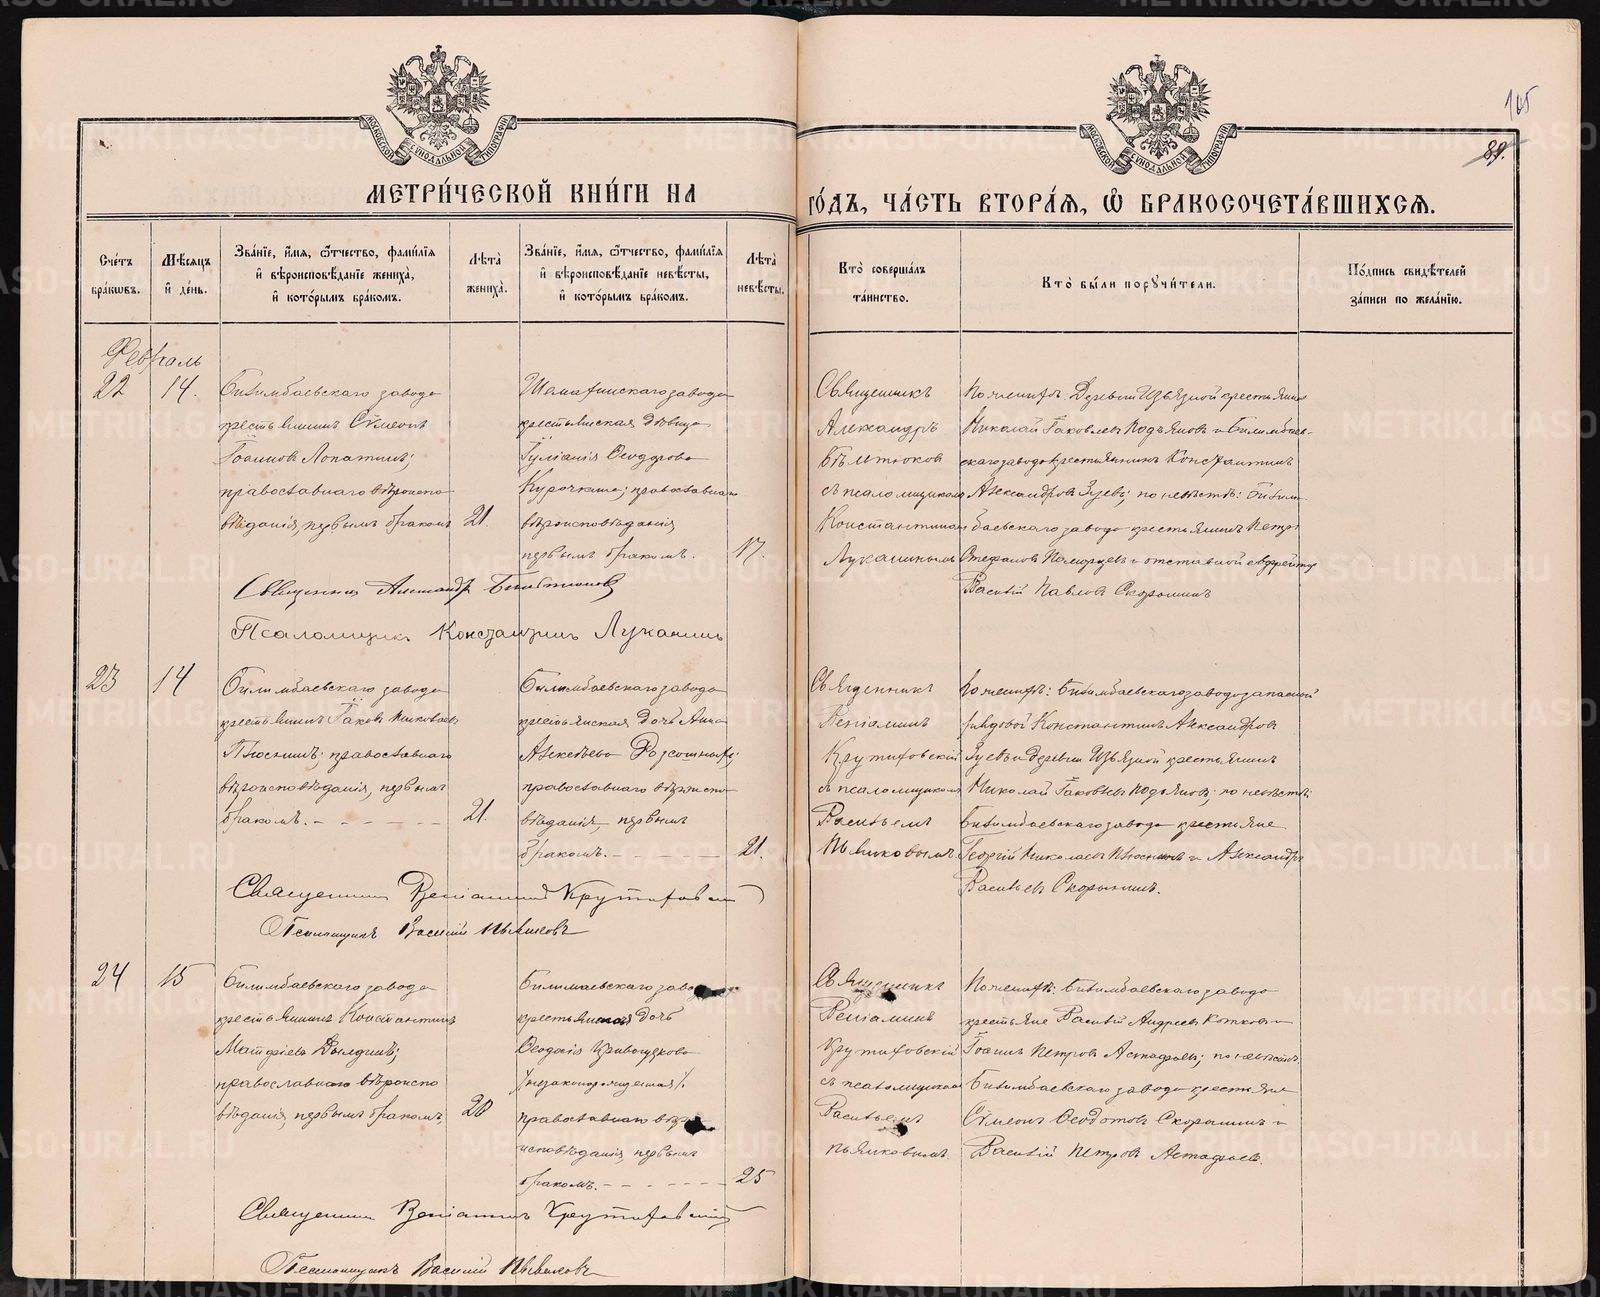 105
89.
МОСКОВСКОЙ СѴНОДАЛЬНОЙ ТИПОГРАФІИ
МОСКОВСКОЙ СѴНОДАЛЬНОЙ ТИПОГРАФІИ
МЕТРИ́ЧЕСКОЙ КНИ́ГИ НА
ГО́ДЪ, ЧА́СТЬ ВТОРА́Я, Ѽ БРАКОСОЧЕТА́ВШИХСЯ.
Сче́тъ бра́кѡвъ.
Мѣ́сяцъ и҆ де́нь.
Зва́нїе, и҆́мѧ, ѻ҆́тчество, фами́лїѧ и҆ вѣроисповѣ́данїе жениха̀, и҆ кото́рымъ бра́комъ.
Лѣта̀ жениха̀.
Зва́нїе, и҆́мѧ, ѻ҆́тчество, фами́лїѧ и҆ вѣроисповѣ́данїе невѣ́сты, и҆ кото́рымъ бра́комъ.
Лѣта̀ невѣ́сты.
Кто̀ соверша́лъ та́инство.
Кто̀ бы́ли порꙋчи́тели.
По́дпись свидѣ́телей за́писи по жела́нїю.
Февраль
22
14.
Билимбаевскаго завода
крестьянинъ Сѵмеонъ
Іоанновъ Лопатинъ;
православнаго вѣроиспо
вѣданія, первымъ бракомъ
21.
Шематинскаго завода
крестьянская дѣвица
Іуліанія Ѳеодорова
Курочкина; православнаго
вѣроисповѣданія,
первымъ бракомъ.
17.
Священникъ
Александръ
Бѣльтюковъ
съ псаломщикомъ
Константиномъ
Луканинымъ
По женихѣ: Деревни Извязной крестьянинъ
Николай Іаковлевъ Подъяновъ и Билимбаев-
скаго завода крестьянинъ Константинъ
Александровъ Зуевъ; по невѣстѣ: Билим-
баевскаго завода крестьянинъ Петръ
Стефановъ Поморцевъ и отставной ефрейторъ
Василій Павловъ Скорынинъ
Священникъ Александръ Бѣльтюковъ
Псаломщикъ Константинъ Луканинъ
23
14
Билимбаевскаго завода
крестьянинъ Іаковъ Николаевъ
Плюснинъ; православнаго
вѣроисповѣданія, первымъ
бракомъ. - - - - - -
21.
Билимбаевскаго завода
крестьянская дочь Анна
Алексѣева
православнаго вѣроиспо
вѣданія, первымъ
бракомъ. - - - - - -
21.
Священникъ
Веніаминъ
Крутиховскій
съ псаломщикомъ
Васильемъ
Пьянковымъ
По женихѣ: Билимбаевскаго завода запасной
рядовой Константинъ Александровъ
Зуевъ и деревни Извязной крестьянинъ
Николай Іаковлевъ Подъяновъ; по невѣстѣ:
Билимбаевскаго завода крестьяне
Георгій Николаевъ Плюснинъ и Александръ
Васильевъ Скорынинъ.
Священникъ Веніаминъ Крутиховскій
Псаломщикъ Василій Пьянковъ
24
15
Билимбаевскаго завода
крестьянинъ Константинъ
Матѳіевъ Дылдинъ;
православнаго вѣроиспо
вѣданія, первымъ бракомъ,
20
Билимбаевскаго завода
крестьянская дочь
Ѳеодосія Кривощекова
/незаконорожденная/.
православнаго вѣро
исповѣданія, первымъ
бракомъ. - - - - - -
25
Священникъ
Веніаминъ
Крутиховскій
съ псаломщикомъ
Васильемъ
Пьянковымъ.
По женихѣ: Билимбаевскаго завода
крестьяне Василій Андреевъ Котковъ и
Іоаннъ Петровъ Астафьевъ; по невѣстѣ:
Билимбаевскаго завода крестьяне
Сѵмеонъ Ѳеодотовъ Скорынинъ и
Василій Петровъ Астафьевъ.
Священникъ Веніаминъ Крутиховскій
Псаломщикъ Василій Пьянковъ
METRIKI.GASO-URAL.RU